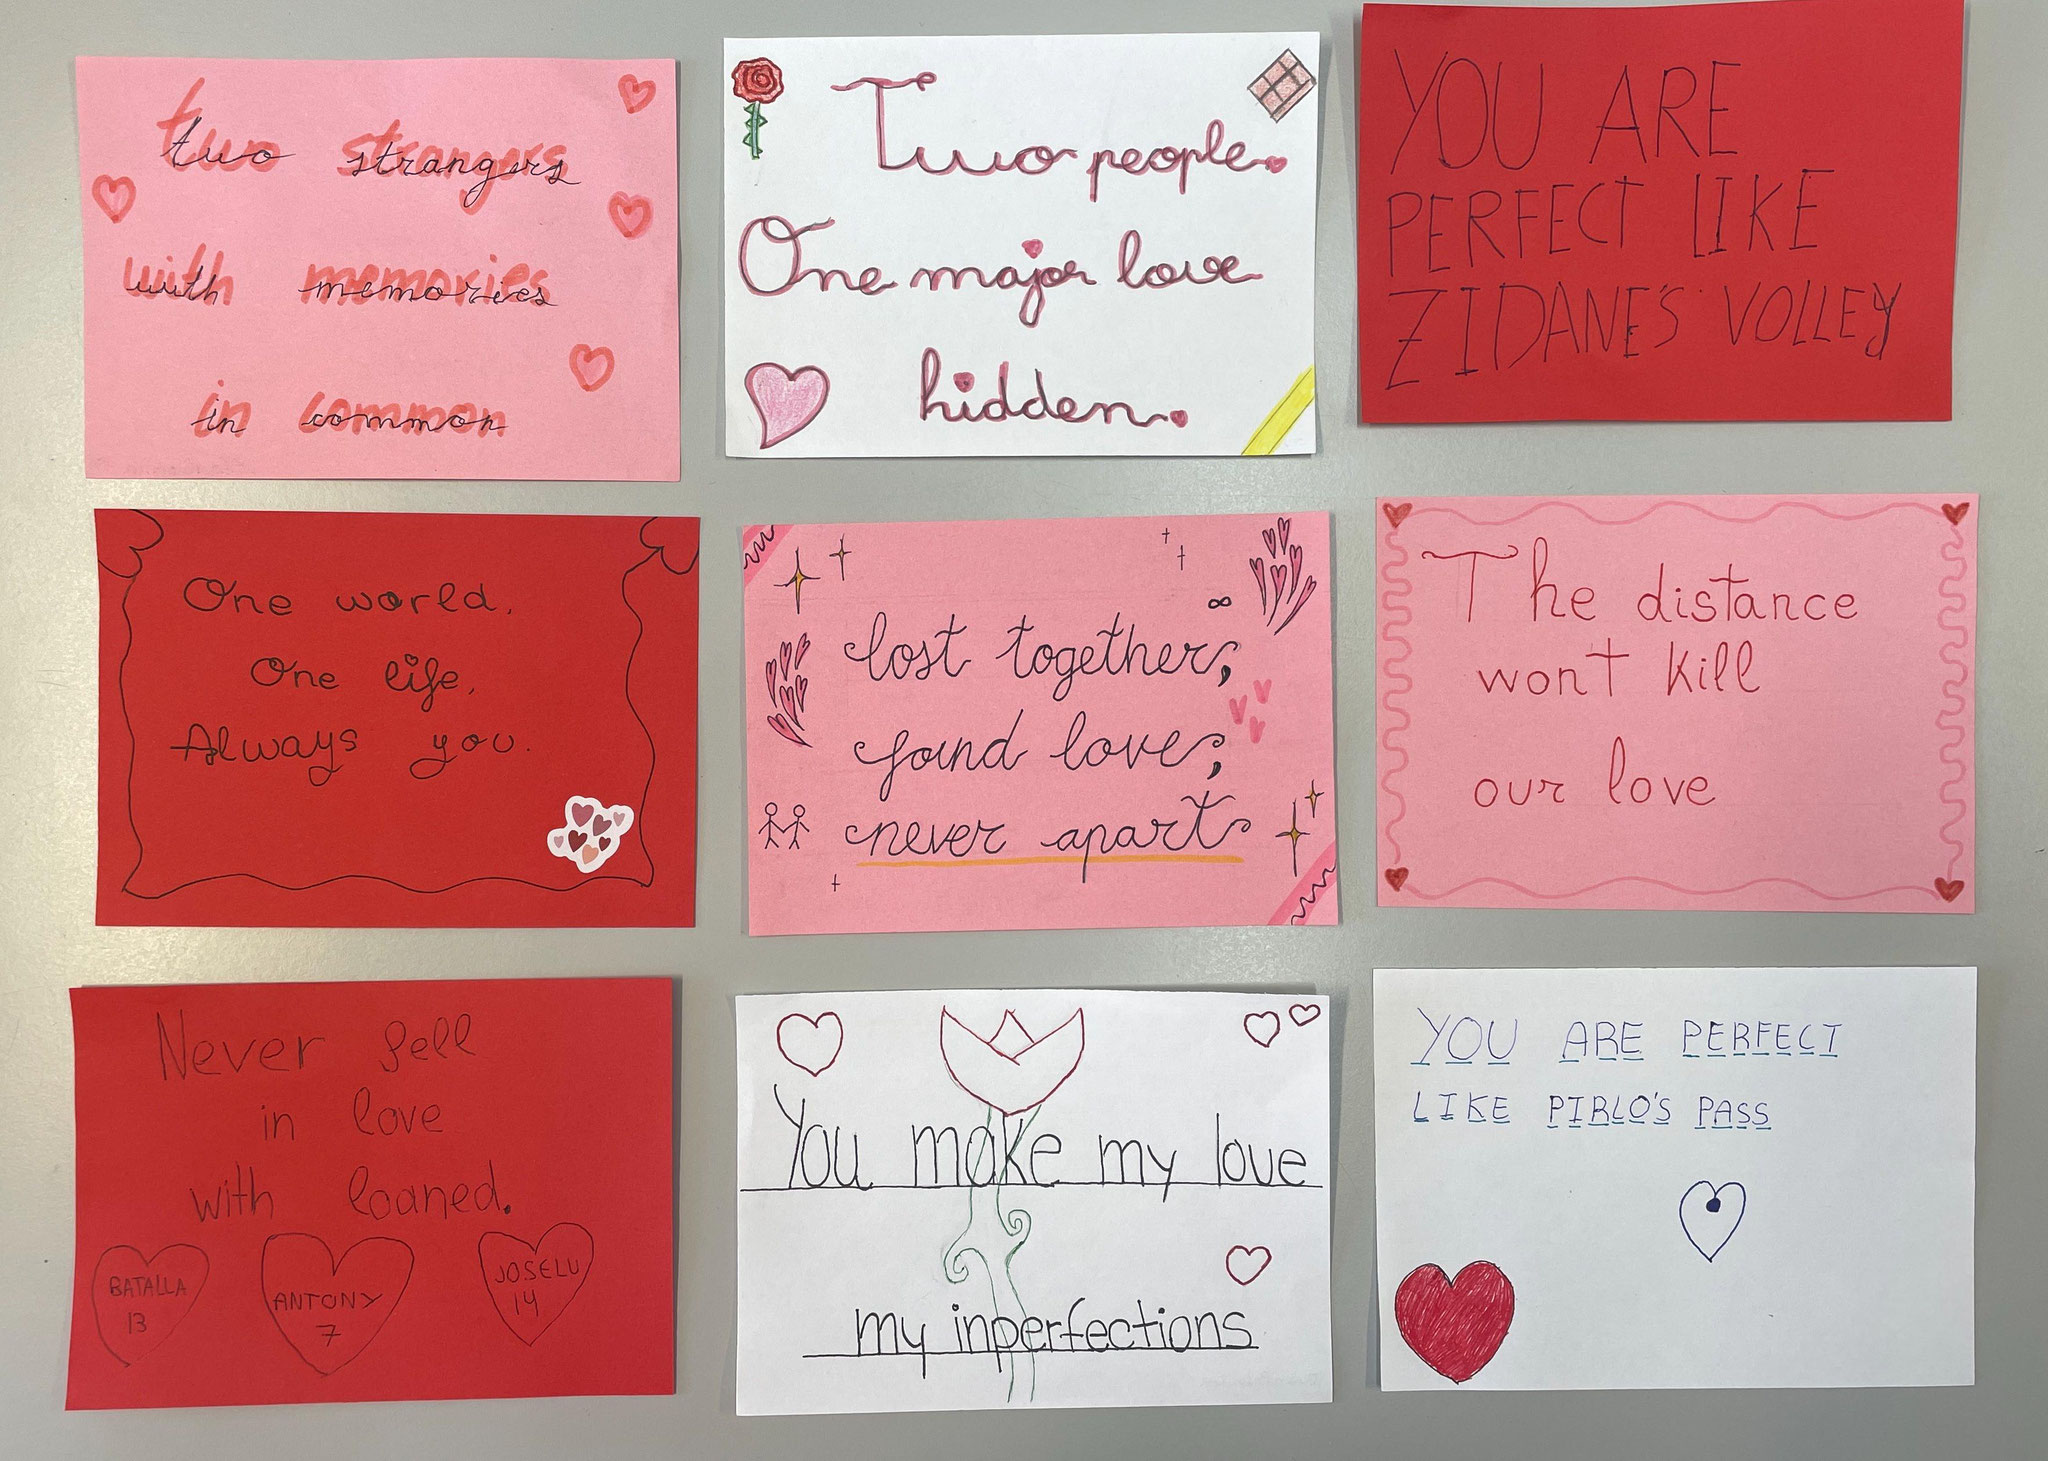 two strangers
with memories
in common
Two people.
One major love
hidden.
YOU ARE
PERFECT LIKE
ZIDANE'S VOLLEY
One world,
One life,
Always you.
lost together,
found love,
never apart
The distance
won't kill
our love
Never fell
in love
with loaned.
BATALLA
13
ANTONY
7
JOSELU
14
You make my love
my inperfections
YOU ARE PERFECT
LIKE PIRLO'S PASS